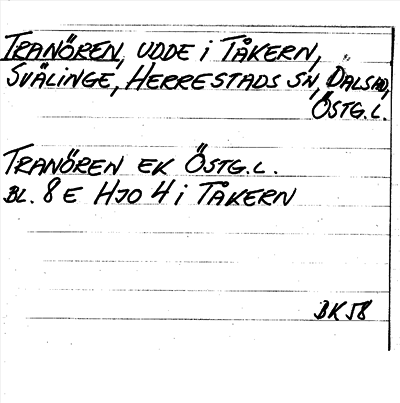 TRANÖREN, UDDE I TÅKERN,
SVÄLINGE, HERRESTADS SN, DALS HD,
ÖSTG.L.
TRANÖREN EK ÖSTG.L.
BL. 8 E HJO 4 i TÅKERN
BK 58